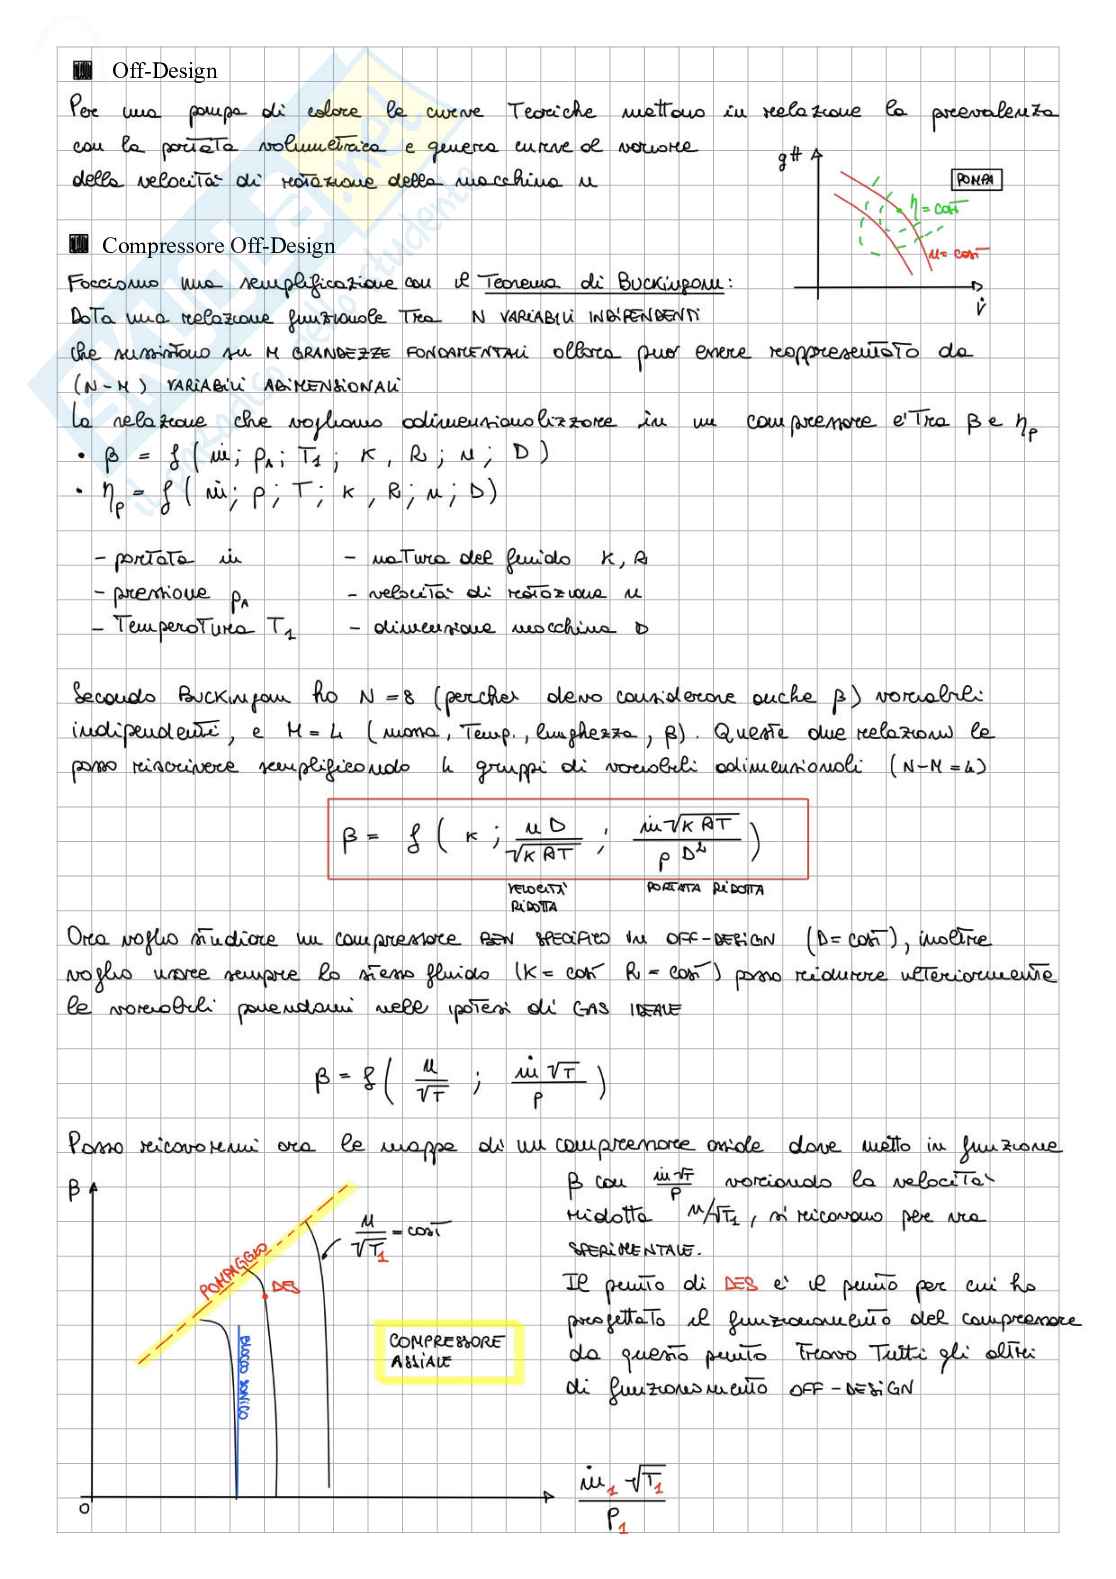 Off-Design
Per una pompa di calore le curve Teoriche mettono in relazione la prevalenza
con la portata volumetrica e genera curve al variare
della velocità di rotazione della macchina n
gH
POMPA
η = cost
n = cost
V̇
Compressore Off-Design
Facciamo una semplificazione con il Teorema di Buckingam:
Data una relazione funzionale Tra N VARIABILI INDIPENDENTI
che sussistono su M GRANDEZZE FONDAMENTALI allora puo' essere rappresentato da
(N-M) VARIABILI ADIMENSIONALI
La relazione che vogliamo adimensionalizzare in un compressore e' Tra β e ηp
• β = f ( ṁ; p1; T1; K, R; n; D )
• ηp = f ( ṁ; p; T; K, R; n; D )
- portata ṁ - natura del fluido K, R
- pressione p1 - velocità di rotazione n
- Temperatura T1 - dimensione macchina D
Secondo Buckingam ho N = 8 (perche' devo considerare anche β) variabili
indipendenti, e M = 4 (massa, Temp., lunghezza, β). Queste due relazioni le
posso riscrivere semplificando 4 gruppi di variabili adimensionali (N-M = 4)
β = f ( K ; n D / √KRT ; ṁ √KRT / p D² )
VELOCITÀ RIDOTTA PORTATA RIDOTTA
Ora voglio studiare un compressore BEN SPECIFICO in OFF-DESIGN (D = cost), inoltre
voglio usare sempre lo stesso fluido (K = cost R = cost) posso ridurre ulteriormente
le variabili ponendomi nell' ipotesi di GAS IDEALE
β = f ( n / √T ; ṁ √T / p )
Posso ricavarmi ora le mappe di un compressore assiale dove metto in funzione
β con ṁ√T / p variando la velocità
ridotta n/√T1, si ricavano per via
SPERIMENTALE.
Il punto di DES e' il punto per cui ho
progettato il funzionamento del compressore
da questo punto Trovo Tutti gli altri
di funzionamento OFF-DESIGN
β
POMPAGGIO
n / √T1 = cost
DES
BLOCCO SONICO
COMPRESSORE
ASSIALE
0
ṁ1 √T1 / P1